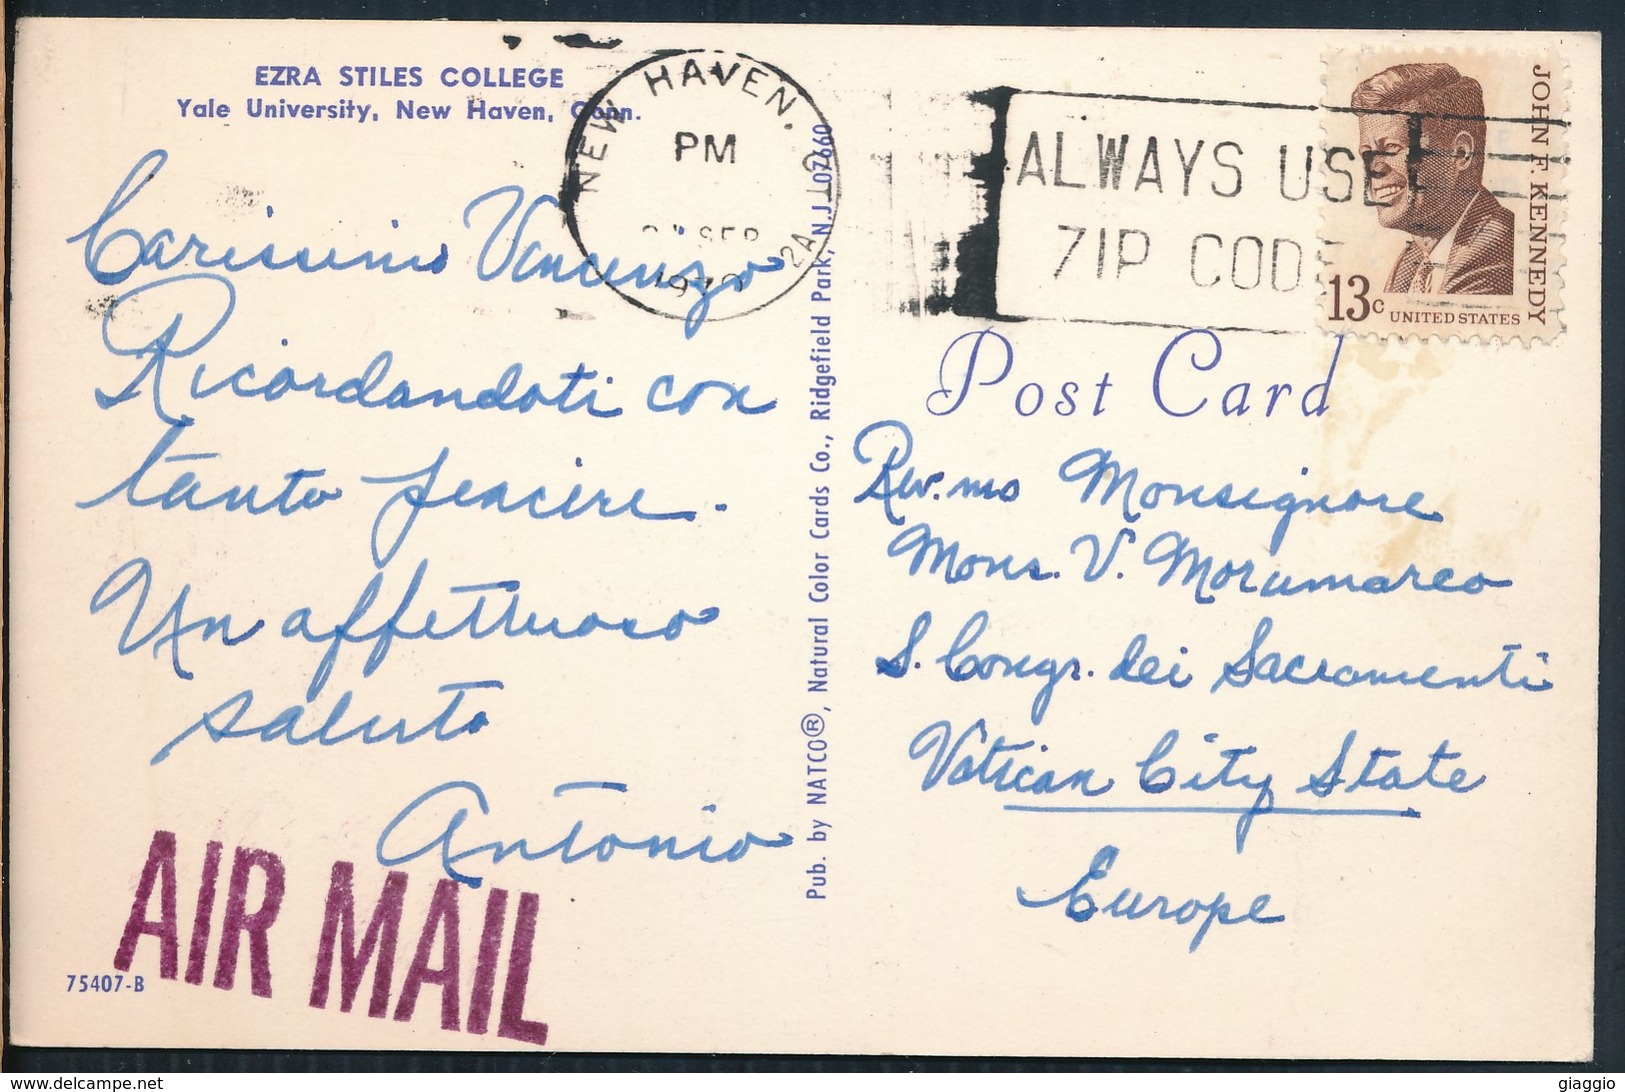 EZRA STILES COLLEGE
Yale University, New Haven, Conn.
NEW HAVEN.
PM
SEP
2A
ALWAYS USE
ZIP CODE
JOHN F. KENNEDY
13c UNITED STATES
Carissimo Vincenzo
Ricordandoti con
tanto piacere.
Un affettuoso
saluto
Antonio
AIR MAIL
75407-B
Pub. by NATCO®, Natural Color Cards Co., Ridgefield Park, N.J. 07660
Post Card
Rev.mo Monsignore
Mons. V. Morumarco
S. Congr. dei Sacramenti
Vatican City State
Europe
www.delcampe.net
giaggio